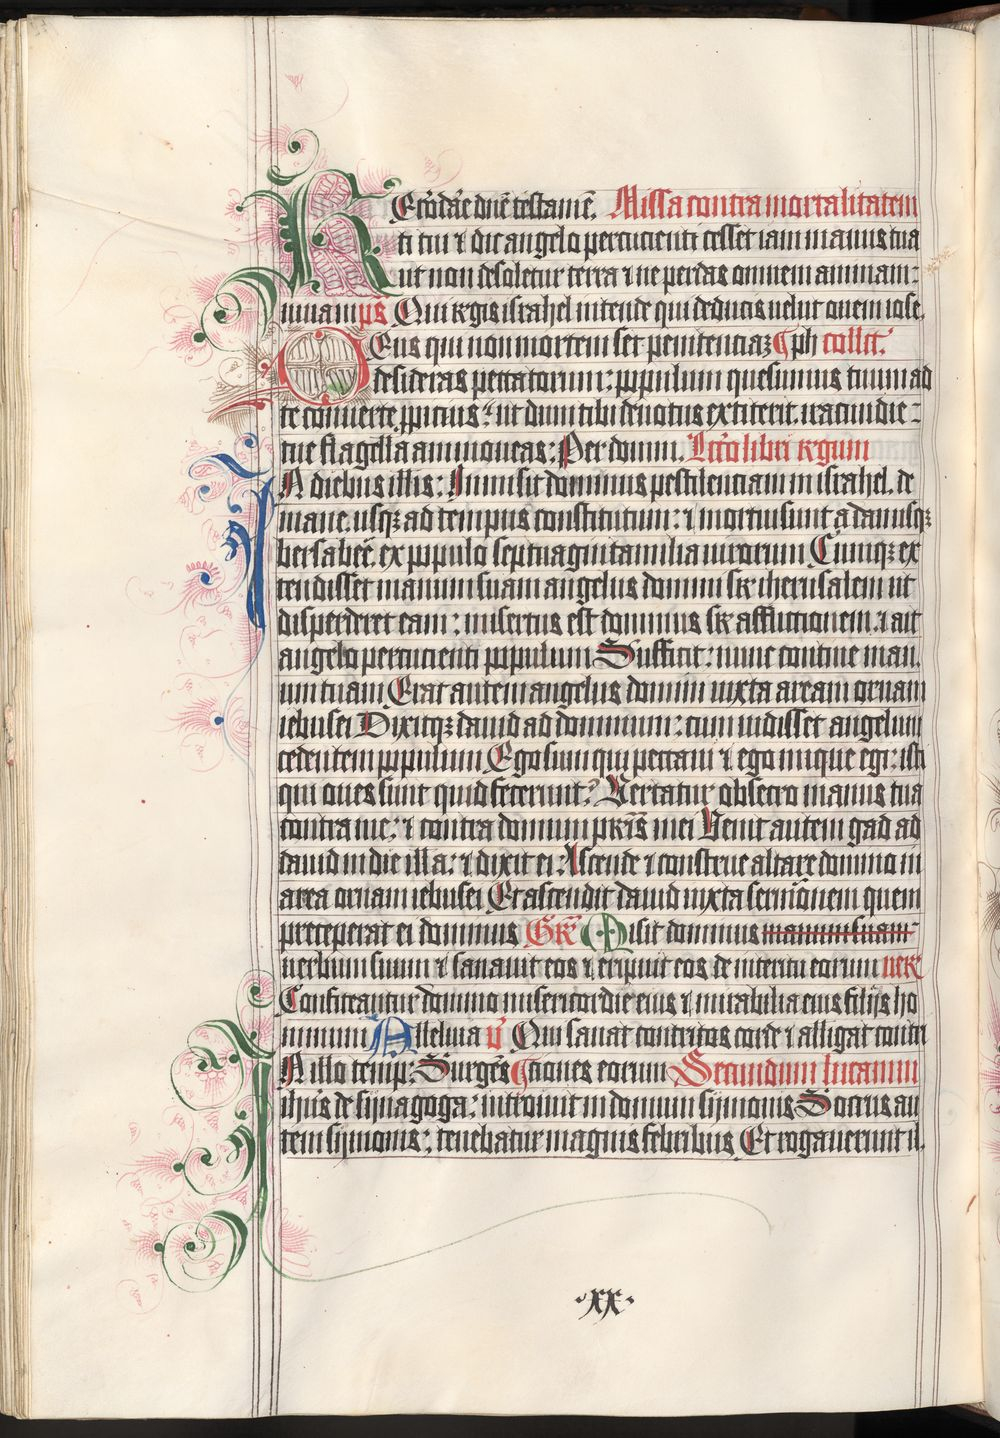 REcordae dne testame. Missa contra mortalitatem
ti tui ⁊ dic angelo percucienti cesset iam manus tua
ut non desoletur terra ⁊ ne perdas omnem animam:
uiuam ps Qui regis israhel intende qui deducis uelut ouem iose.
DEus qui non mortem set penitenciaꝫ ph collect.
desideras peccatorum: populum quesumus tuum ad
te conuerte ꝓpicius: ut dum tibi deuotus extiterit. iracundie:
tue flagella ammoueas: Per domi. Leccio libri regum
IN diebus illis: Inmisit dominus pestilenciam in israhel. de
mane. usqꝫ ad tempus constitutum: ⁊ mortui sunt a dan usqꝫ
bersabee. ex populo septuaginta milia uirorum Cumqꝫ ex
tendisset manum suam angelus domini sr iherusalem ut
disperderet eam: misertus est dominus sr afflictionem. ⁊ ait
angelo percucienti populum Sufficit: nunc contine man.
um tuam Erat autem angelus domini iuxta aream ornam
iebusei Dixitqꝫ dauid ad dominum: cum uidisset angelum
cedentem populum Ego sum qui peccaui ⁊ ego inique egi: isti
qui oues sunt quid fecerunt? Uertatur obsecro manus tua
contra me: ⁊ contra domum pr̄is mei Uenit autem gad ad
dauid in die illa: ⁊ dixit ei: Ascende ⁊ construe altare domino in
area ornam iebusei Et ascendit dauid iuxta sermonem quem
preceperat ei dominus Gr̄ Misit dominus manum suam
uerbum suum ⁊ sanauit eos ⁊ eripuit eos de interitu eorum uer
Confiteantur domino misericordie eius ⁊ mirabilia eius filijs ho
minum Alleluia v̄ Qui sanat contritos corde ⁊ alligat contri
IN illo temp: Surgēs ciones eorum Secundum lucamm
ihus de synagoga: introiuit in domum symonis Socrus au
tem symonis: tenebatur magnis febribus Et rogauerunt il.
·xx·